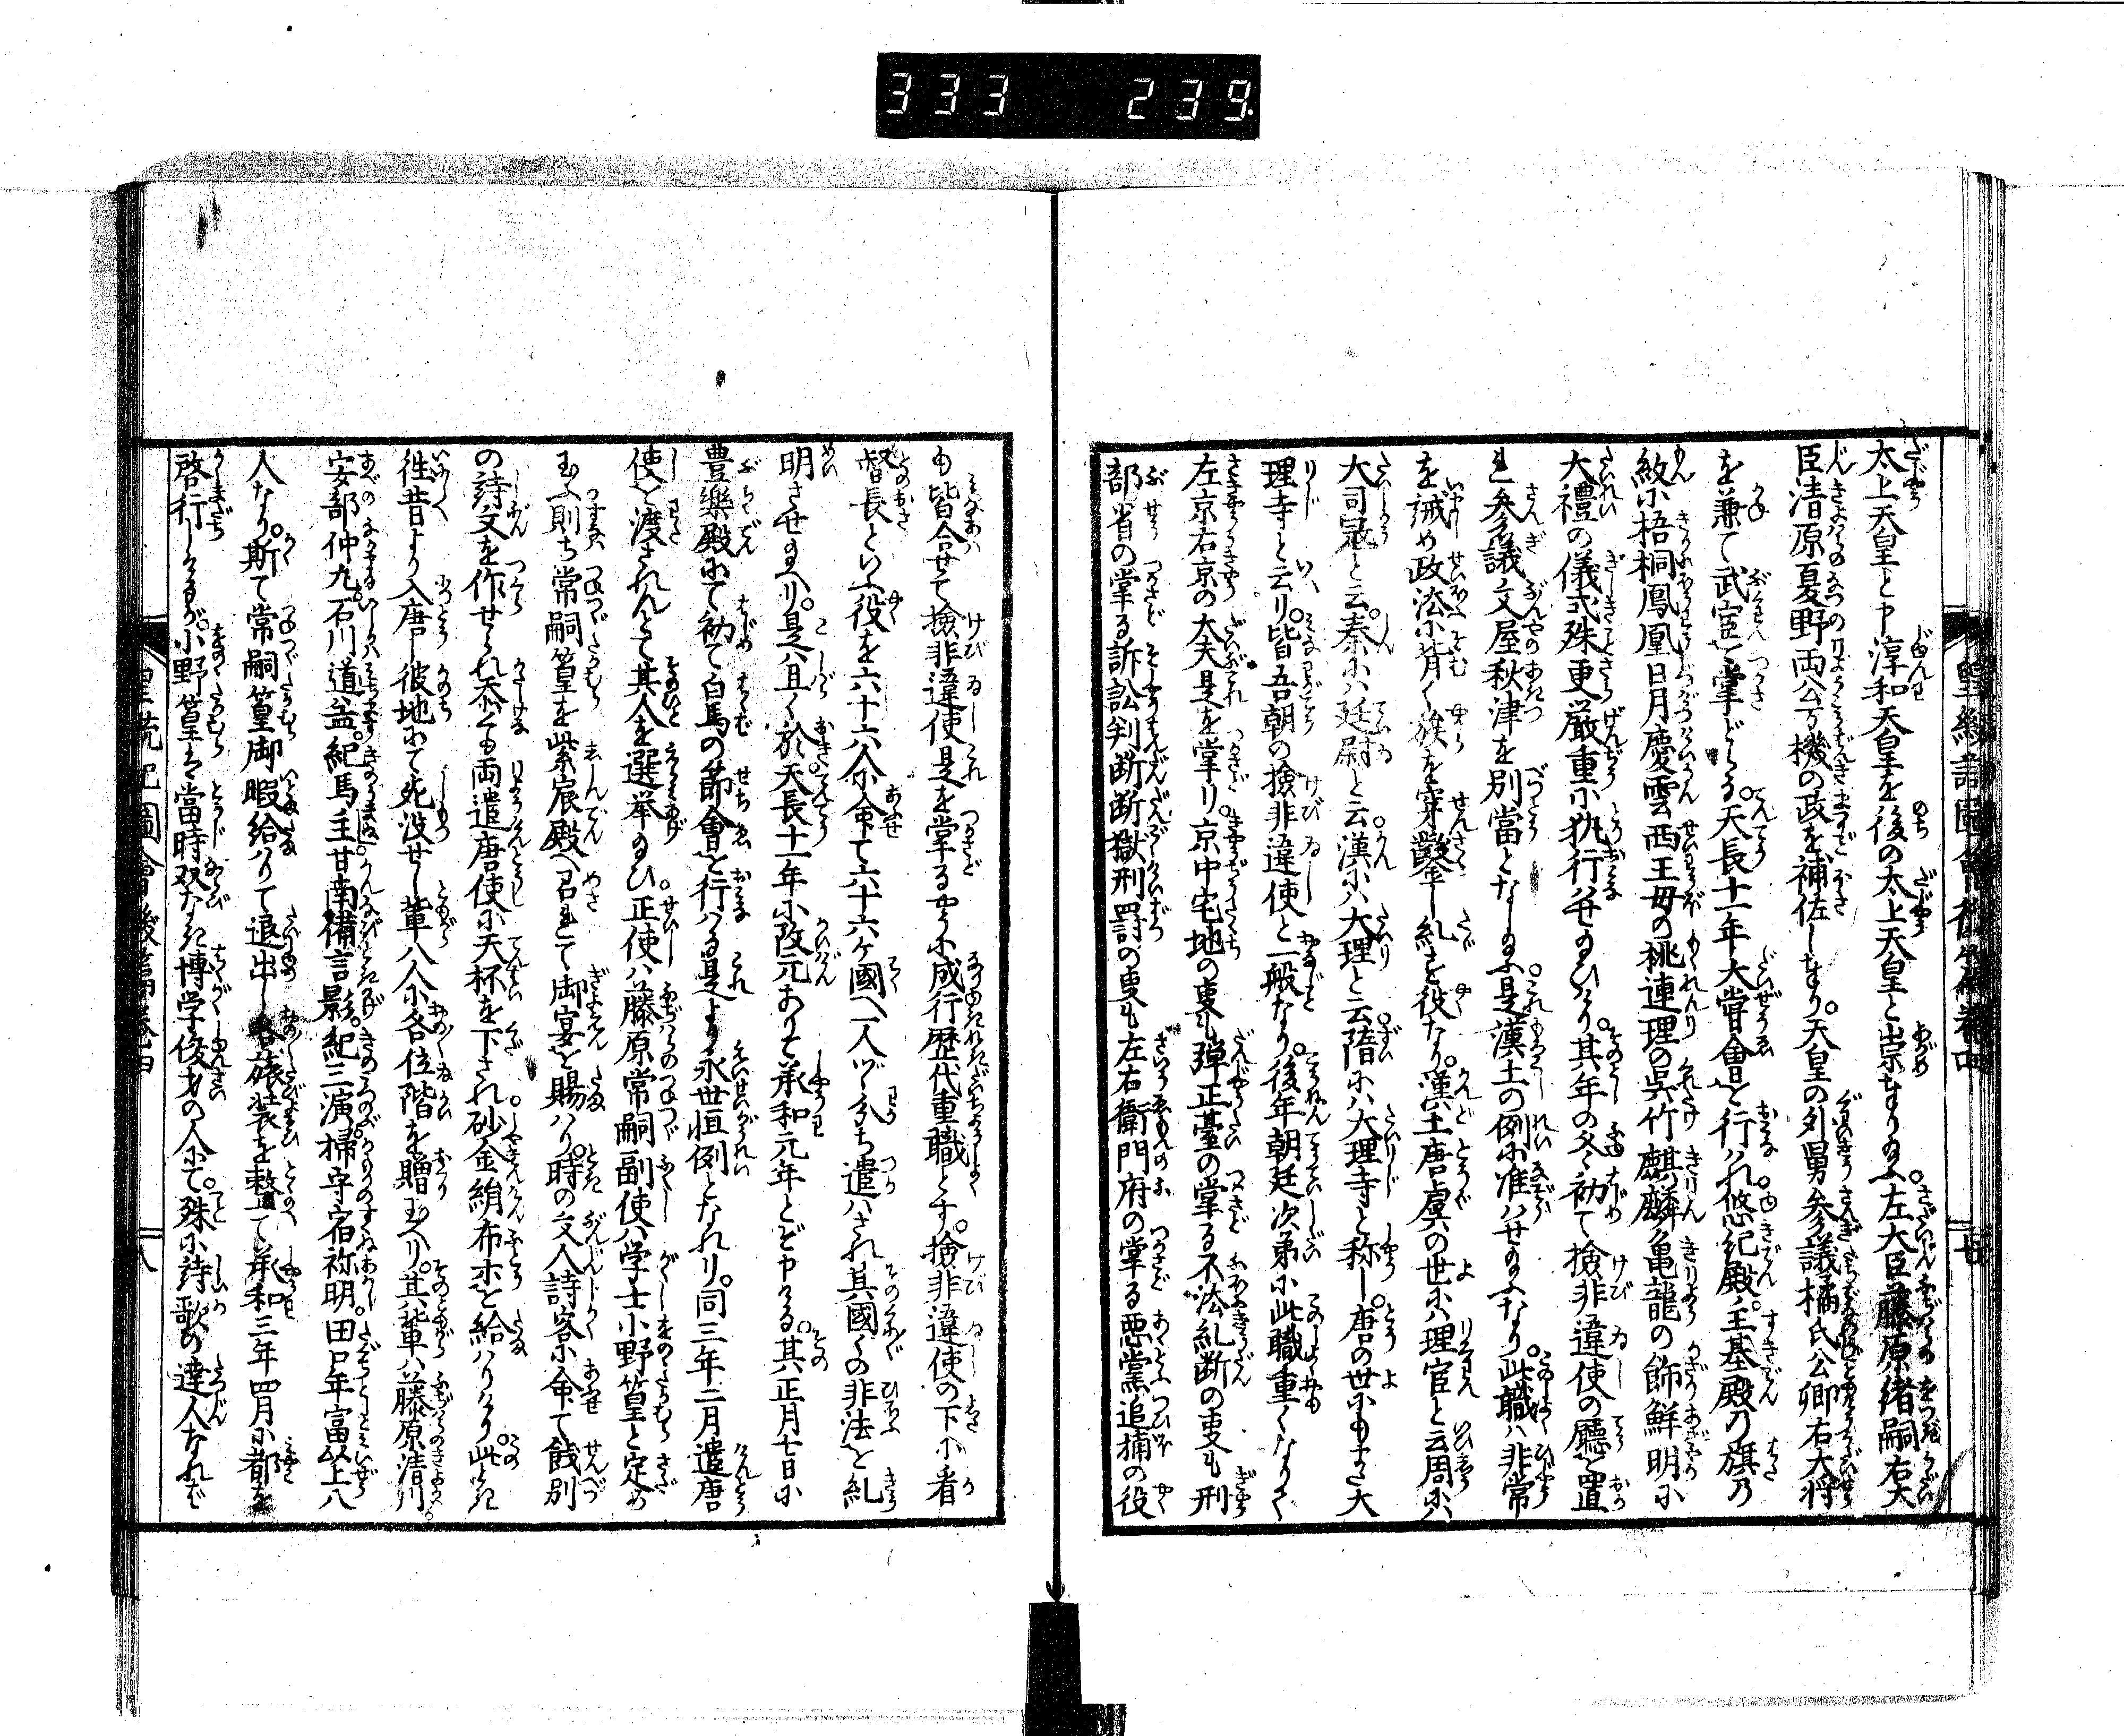 333 239
太上天皇と申淳和天皇を後の太上天皇と崇奉り給ふ。左大臣藤原緒嗣右大
臣清原夏野両公万機の政を補佐し奉り。天皇の外舅参議橘氏公卿右大将
を兼て武官を掌どる。天長十一年大嘗會を行はれ。悠紀殿。主基殿の旗の
紋に梧桐鳳凰日月慶雲西王母の桃連理の呉竹麒麟亀龍の飾鮮明に
大禮の儀式殊更厳重に執行はせ給ひけり。其年の冬初て撿非違使の廳を置
れ参議文屋秋津を別當となし給ふ。是漢土の例に准はせ給ふなり。此職は非常
を誡め政法に背く族を穿鑿し糺す役なり。漢土唐虞の世には理官と云周には
大司寇と云。秦には廷尉と云。漢には大理と云。隋には大理寺と称し。唐の世にもまた大
理寺と云り。皆吾朝の撿非違使と一般なり。後年朝廷次第に此職重くなりて
左京右京の大夫是を掌り。京中宅地の事も弾正臺の掌る不法糺断の事も刑
部省の掌る訴訟判断断獄刑罰の事も左右衛門府の掌る悪黨追捕の役
も皆合せて撿非違使是を掌るやうに成行歴代重職とす。撿非違使の下に看
督長といふ役を六十六人に命て六十六ケ國へ一人づゝ分ち遣はされ其國〻の非法を糺
明させ給へり。是は且く於。天長十一年に改元ありて承和元年とぞ申ける。其正月七日に
豊樂殿にて初て白馬の節會を行はる是より永世恒例となれり。同三年二月遣唐
使を渡されんとて其人を選挙給ひ。正使は藤原常嗣副使は学士小野篁と定め
玉ふ。則ち常嗣篁を紫宸殿へ召れて御宴を賜はり。時の文人詩客に命て餞別
の詩文を作せられ忝くも両遣唐使に天杯を下され。砂金絹布ホを給はりけり。此とき
徃昔より入唐し彼地にて死没せし輩八人に各位階を贈玉へり。其輩は藤原清川。
安部仲九。石川道益。紀馬主。甘南備言影。紀三濱。掃守宿祢明。田口年富以上八
人なり。斯て常嗣篁御暇給はりて退出し各旅装を整て承和三年四月に都を
啓行しけるが。小野篁は當時双なき博学俊才の人にて。殊に詩歌の達人なれど